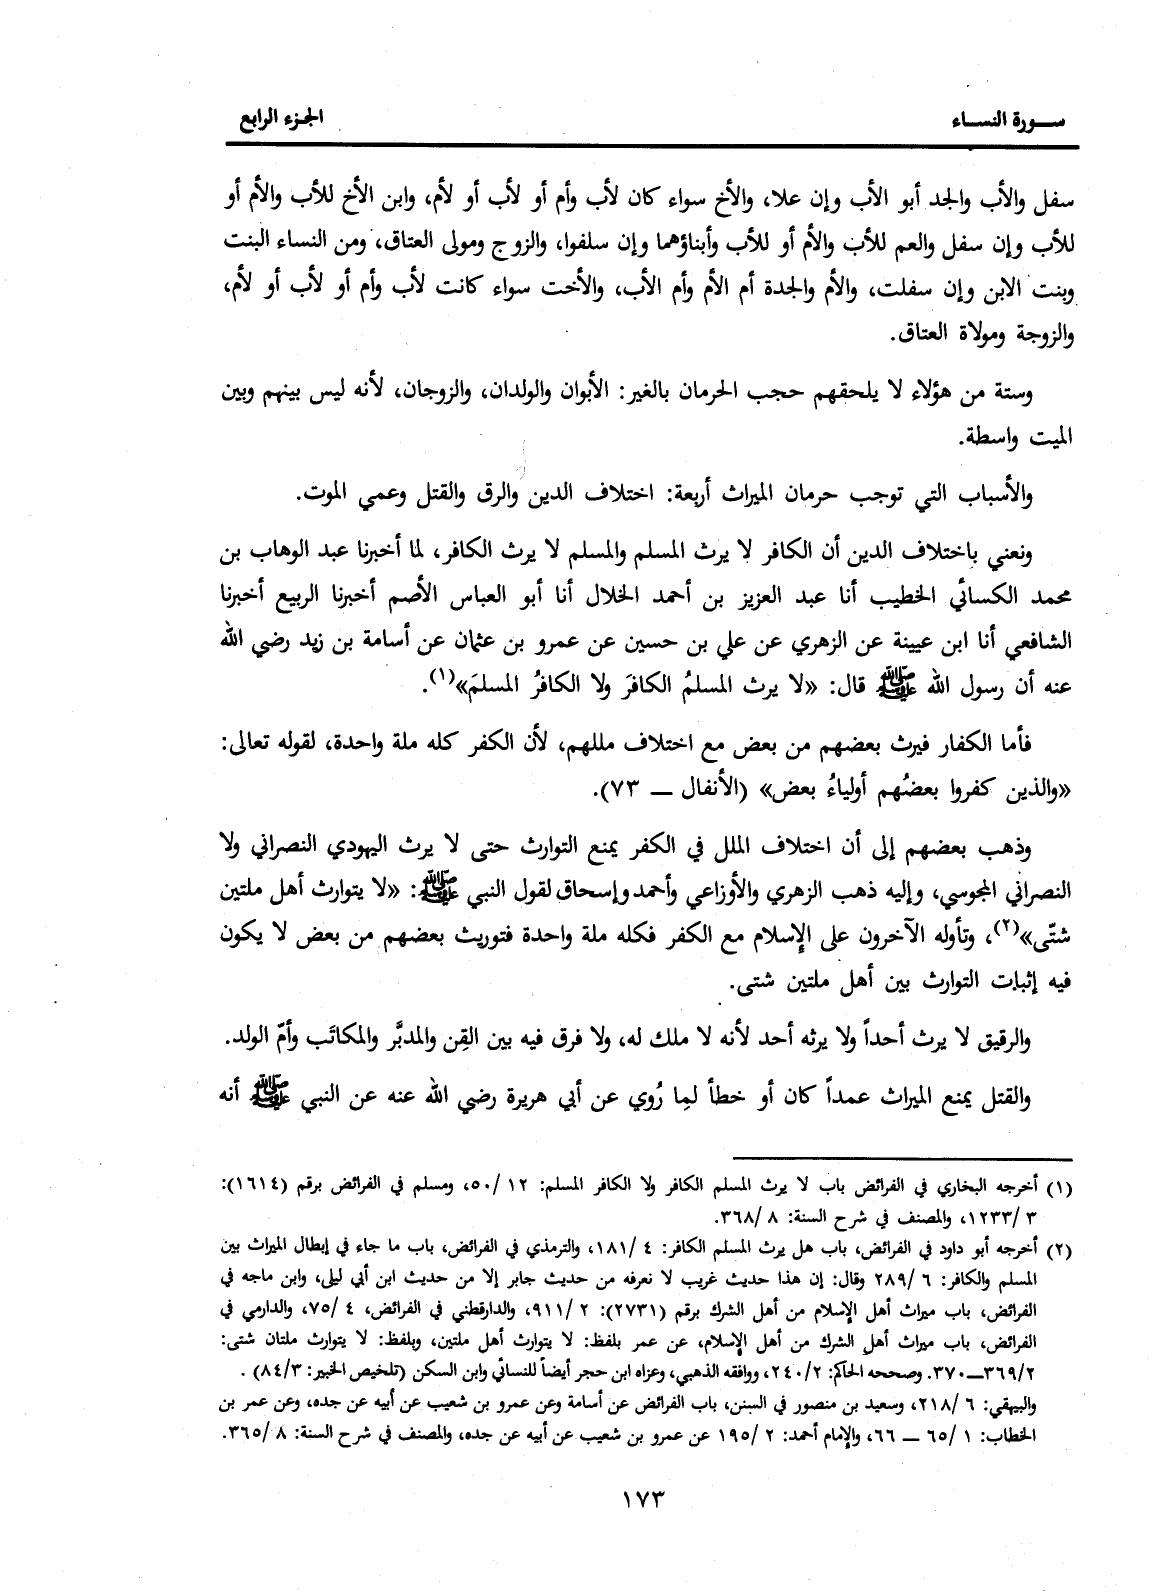 سورة النساء
الجزء الرابع
سفل والأب والجد أبو الأب وإن علا، والأخ سواء كان لأب وأم أو لأب أو لأم، وابن الأخ للأب والأم أو
للأب وإن سفل والعم للأب والأم أو للأب وأبناؤهما وإن سلفوا، والزوج ومولى العتاق، ومن النساء البنت
وبنت الابن وإن سفلت، والأم والجدة أم الأم وأم الأب، والأخت سواء كانت لأب وأم أو لأب أو لأم،
والزوجة ومولاة العتاق.
وستة من هؤلاء لا يلحقهم حجب الحرمان بالغير: الأبوان والولدان، والزوجان، لأنه ليس بينهم وبين
الميت واسطة.
والأسباب التي توجب حرمان الميراث أربعة: اختلاف الدين والرق والقتل وعمي الموت.
ونعني باختلاف الدين أن الكافر لا يرث المسلم والمسلم لا يرث الكافر، لما أخبرنا عبد الوهاب بن
محمد الكسائي الخطيب أنا عبد العزيز بن أحمد الخلال أنا أبو العباس الأصم أخبرنا الربيع أخبرنا
الشافعي أنا ابن عيينة عن الزهري عن علي بن حسين عن عمرو بن عثمان عن أسامة بن زيد رضي الله
عنه أن رسول الله ﷺ قال: «لا يرث المسلمُ الكافرَ ولا الكافرُ المسلمَ»(١).
فأما الكفار فيرث بعضهم من بعض مع اختلاف مللهم، لأن الكفر كله ملة واحدة، لقوله تعالى:
«والذين كفروا بعضُهم أولياءُ بعض» (الأنفال — ٧٣).
وذهب بعضهم إلى أن اختلاف الملل في الكفر يمنع التوارث حتى لا يرث اليهودي النصراني ولا
النصراني المجوسي، وإليه ذهب الزهري والأوزاعي وأحمد وإسحاق لقول النبي ﷺ: «لا يتوارث أهل ملتين
شتّى»(٢)، وتأوله الآخرون على الإسلام مع الكفر فكله ملة واحدة فتوريث بعضهم من بعض لا يكون
فيه إثبات التوارث بين أهل ملتين شتى.
والرقيق لا يرث أحداً ولا يرثه أحد لأنه لا ملك له، ولا فرق فيه بين القِن والمدبَّر والمكاتَب وأمّ الولد.
والقتل يمنع الميراث عمداً كان أو خطأ لمِا رُوي عن أبي هريرة رضي الله عنه عن النبي ﷺ أنه
(١) أخرجه البخاري في الفرائض باب لا يرث المسلم الكافر ولا الكافر المسلم: ١٢ /٥٠، ومسلم في الفرائض برقم (١٦١٤):
٣ /١٢٣٣، والمصنف في شرح السنة: ٨ /٣٦٨.
(٢) أخرجه أبو داود في الفرائض، باب هل يرث المسلم الكافر: ٤ /١٨١، والترمذي في الفرائض، باب ما جاء في إبطال الميراث بين
المسلم والكافر: ٦ /٢٨٩ وقال: إن هذا حديث غريب لا نعرفه من حديث جابر إلا من حديث ابن أبي ليلى، وابن ماجه في
الفرائض، باب ميراث أهل الإسلام من أهل الشرك برقم (٢٧٣١): ٢ /٩١١، والدارقطني في الفرائض، ٤ /٧٥، والدارمي في
الفرائض، باب ميراث أهل الشرك من أهل الإسلام، عن عمر بلفظ: لا يتوارث أهل ملتين، وبلفظ: لا يتوارث ملتان شتى:
٢ /٣٦٩—٣٧٠. وصححه الحاكم: ٢ /٢٤٠، ووافقه الذهبي، وعزاه ابن حجر أيضاً للنسائي وابن السكن (تلخيص الحبير: ٣ /٨٤) .
والبيهقي: ٦ /٢١٨، وسعيد بن منصور في السنن، باب الفرائض عن أسامة وعن عمرو بن شعيب عن أبيه عن جده، وعن عمر بن
الخطاب: ١ /٦٥ — ٦٦، والإمام أحمد: ٢ /١٩٥ عن عمرو بن شعيب عن أبيه عن جده، والمصنف في شرح السنة: ٨ /٣٦٥.
١٧٣